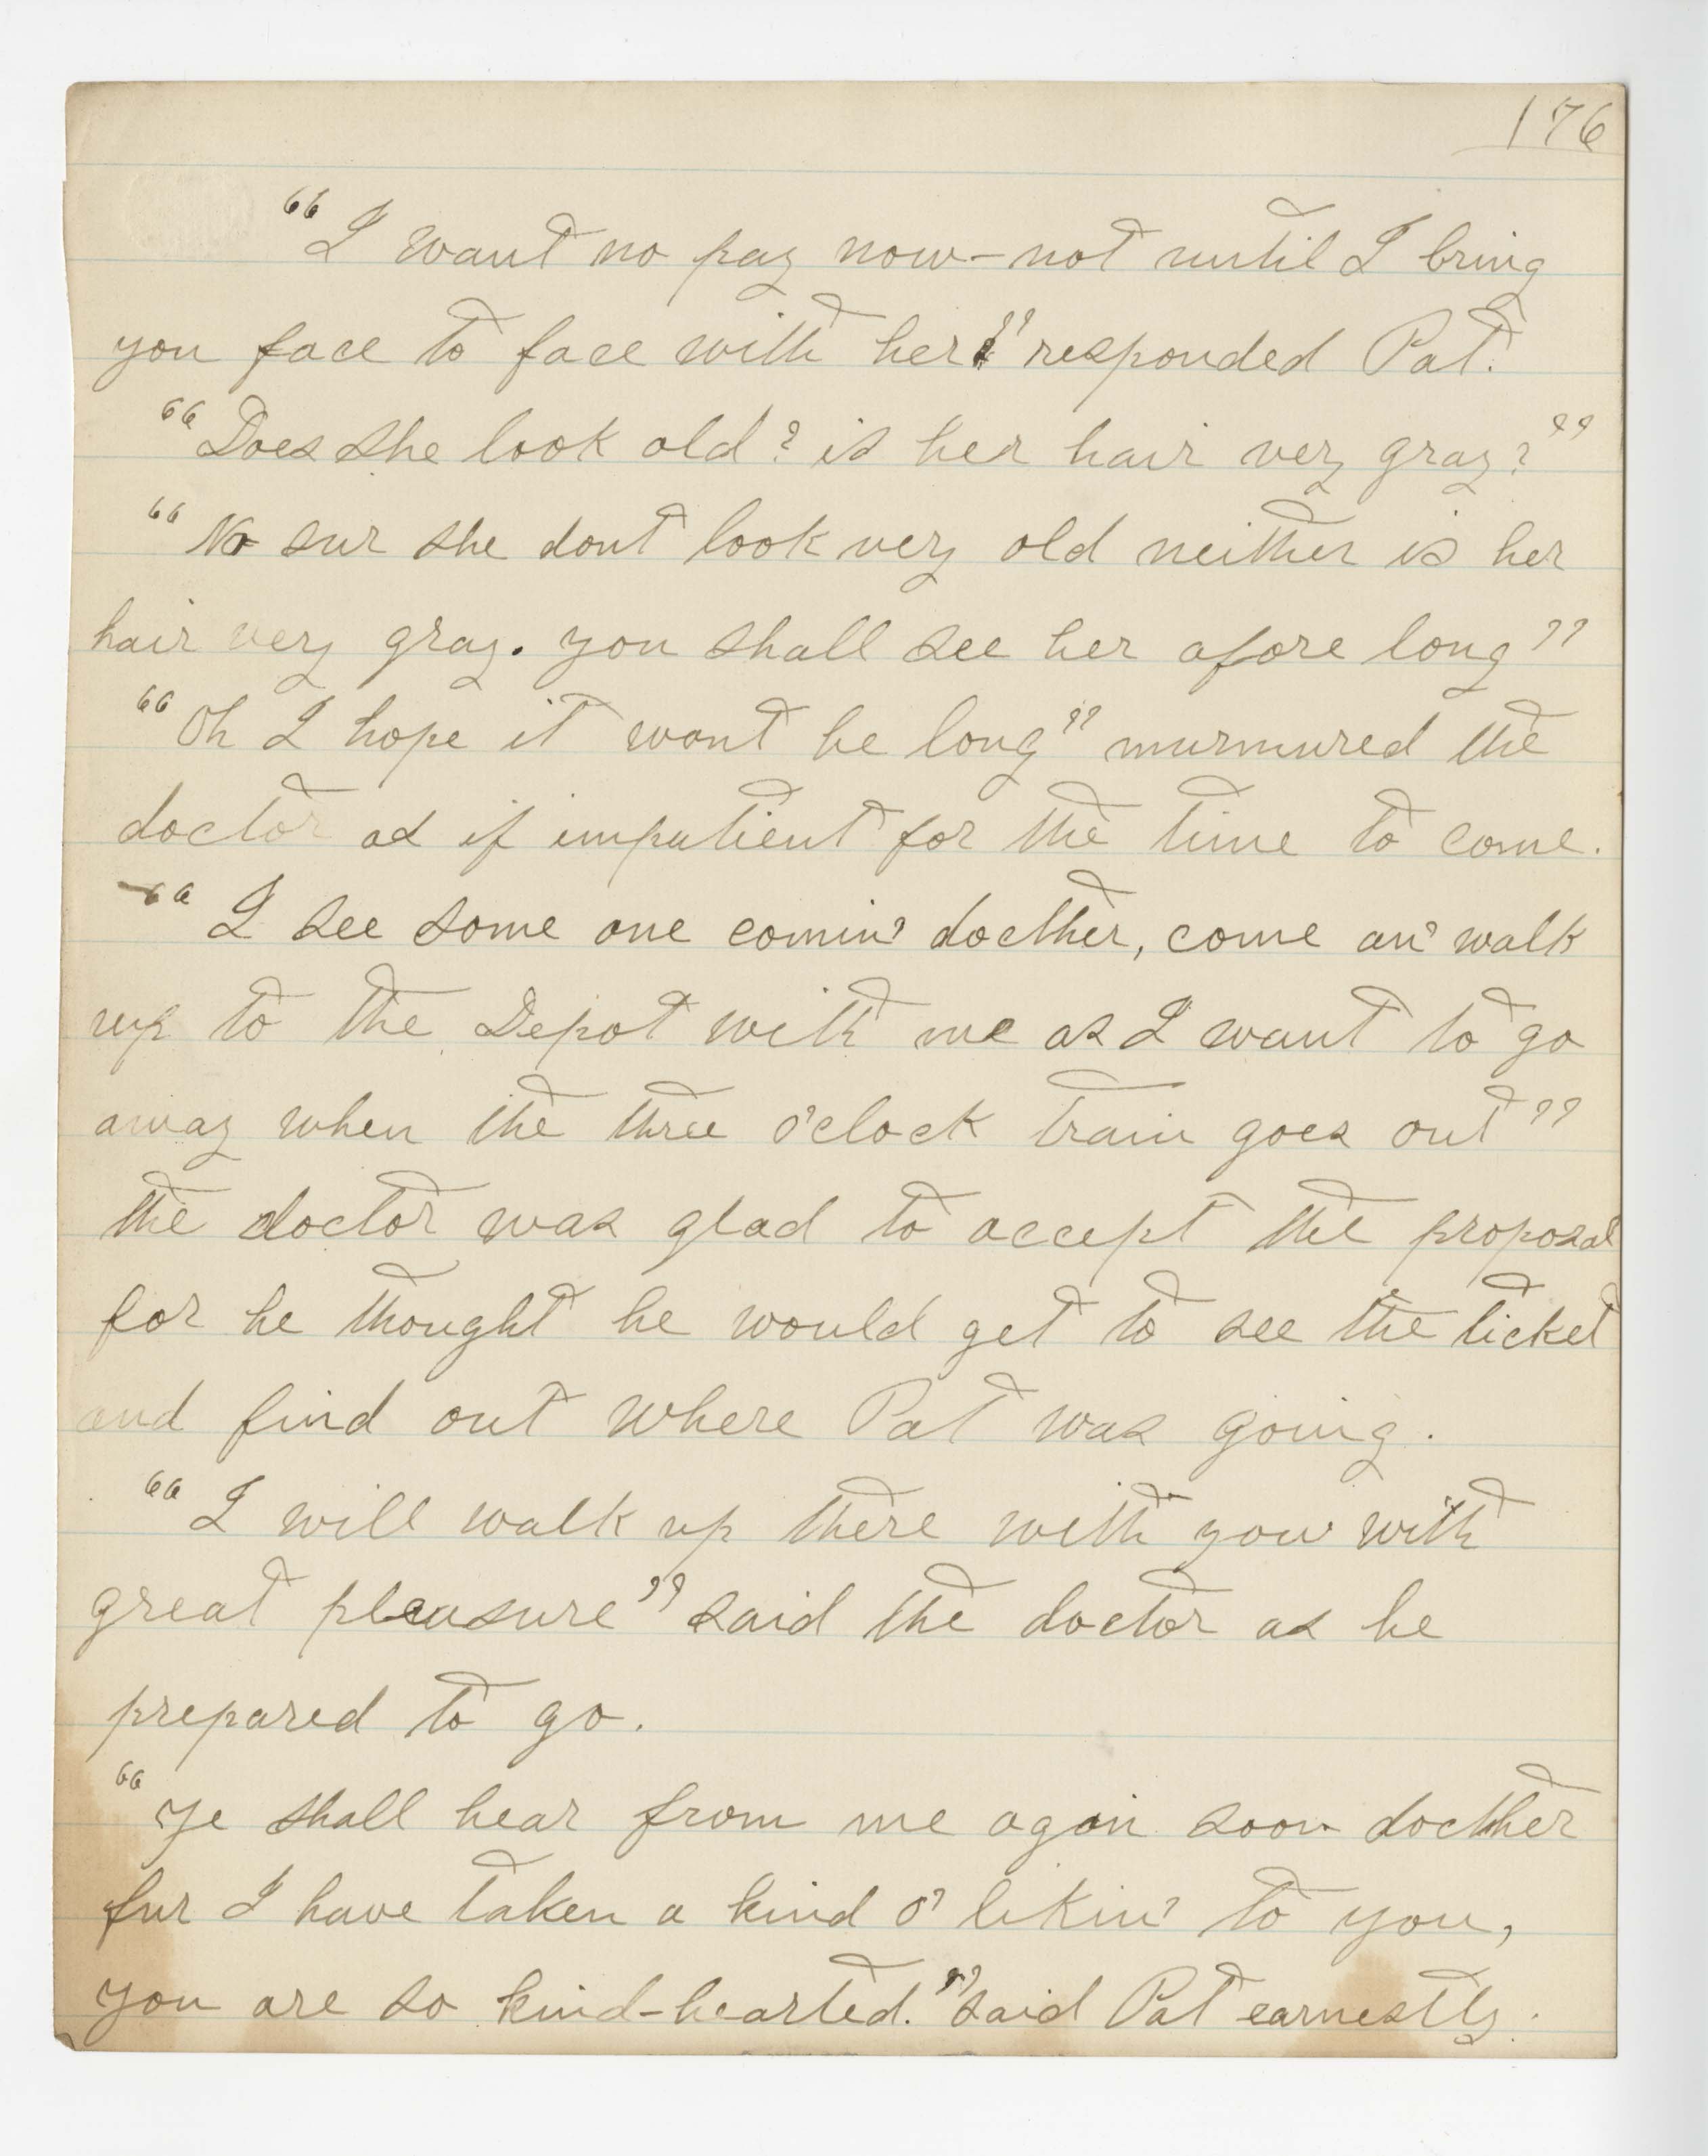 176
"I want no pay now-not until I bring
you face to face with her" responded Pat.
"Does she look old? is her hair very gray?"
"No sur she dont look very old neither is her
hair very gray. you shall see her afore long"
"Oh I hope it wont be long" murmured the
doctor as if impatient for the time to come.
"I see some one comin' docther, come an' walk
up to the Depot with me as I want to go
away when the three o'clock train goes out"
the doctor was glad to accept the proposal
for he thought he would get to see the ticket
and find out where Pat was going.
"I will walk up there with you with
great pleasure" said the doctor as he
prepared to go.
"Ye shall hear from me again soon docther
fur I have taken a kind o' likin' to you,
you are so kind-hearted." said Pat earnestly.